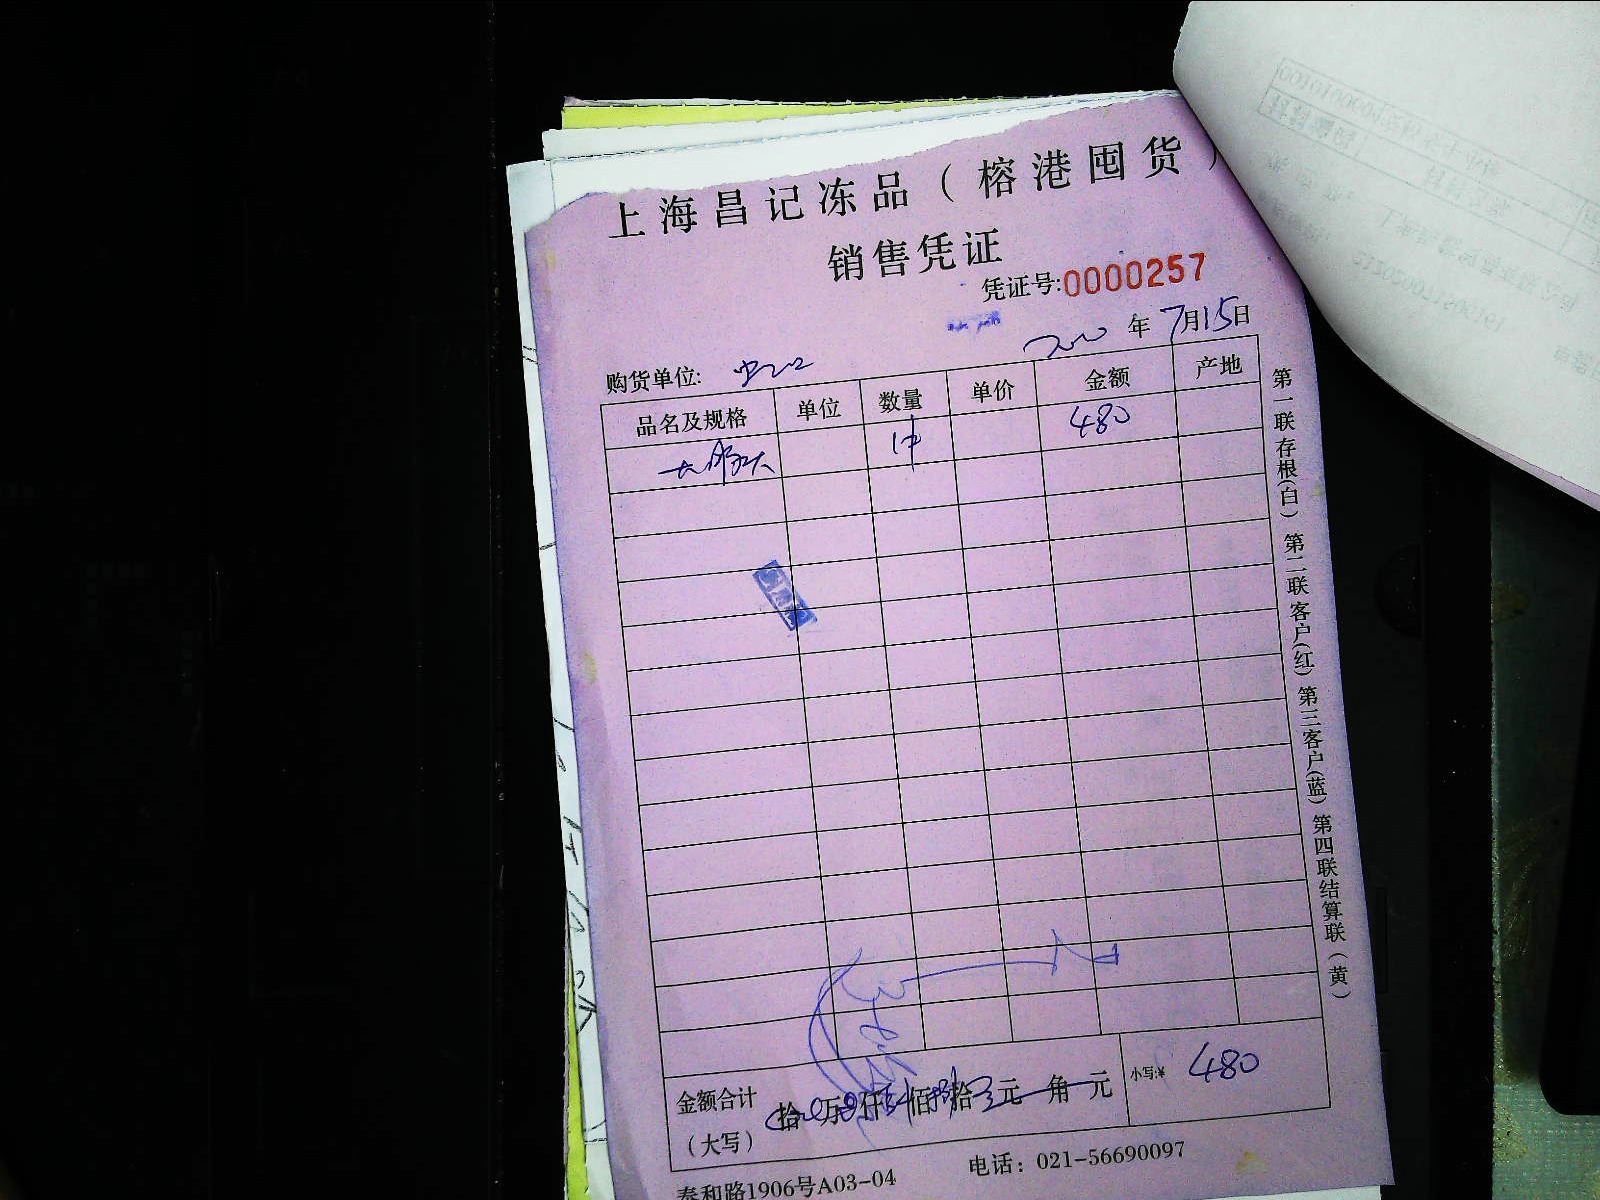 上海昌记冻品（榕港囤货）
销售凭证
凭证号:0000257
年 7月15日
购货单位:
品名及规格 单位 数量 单价 金额 产地
1件 480
第一联存根(白) 第二联客户(红) 第三客户(蓝) 第四联结算联(黄)
金额合计 拾 万 仟 佰 拾 元 角 元 小写:¥ 480
（大写）
泰和路1906号A03-04 电话：021-56690097